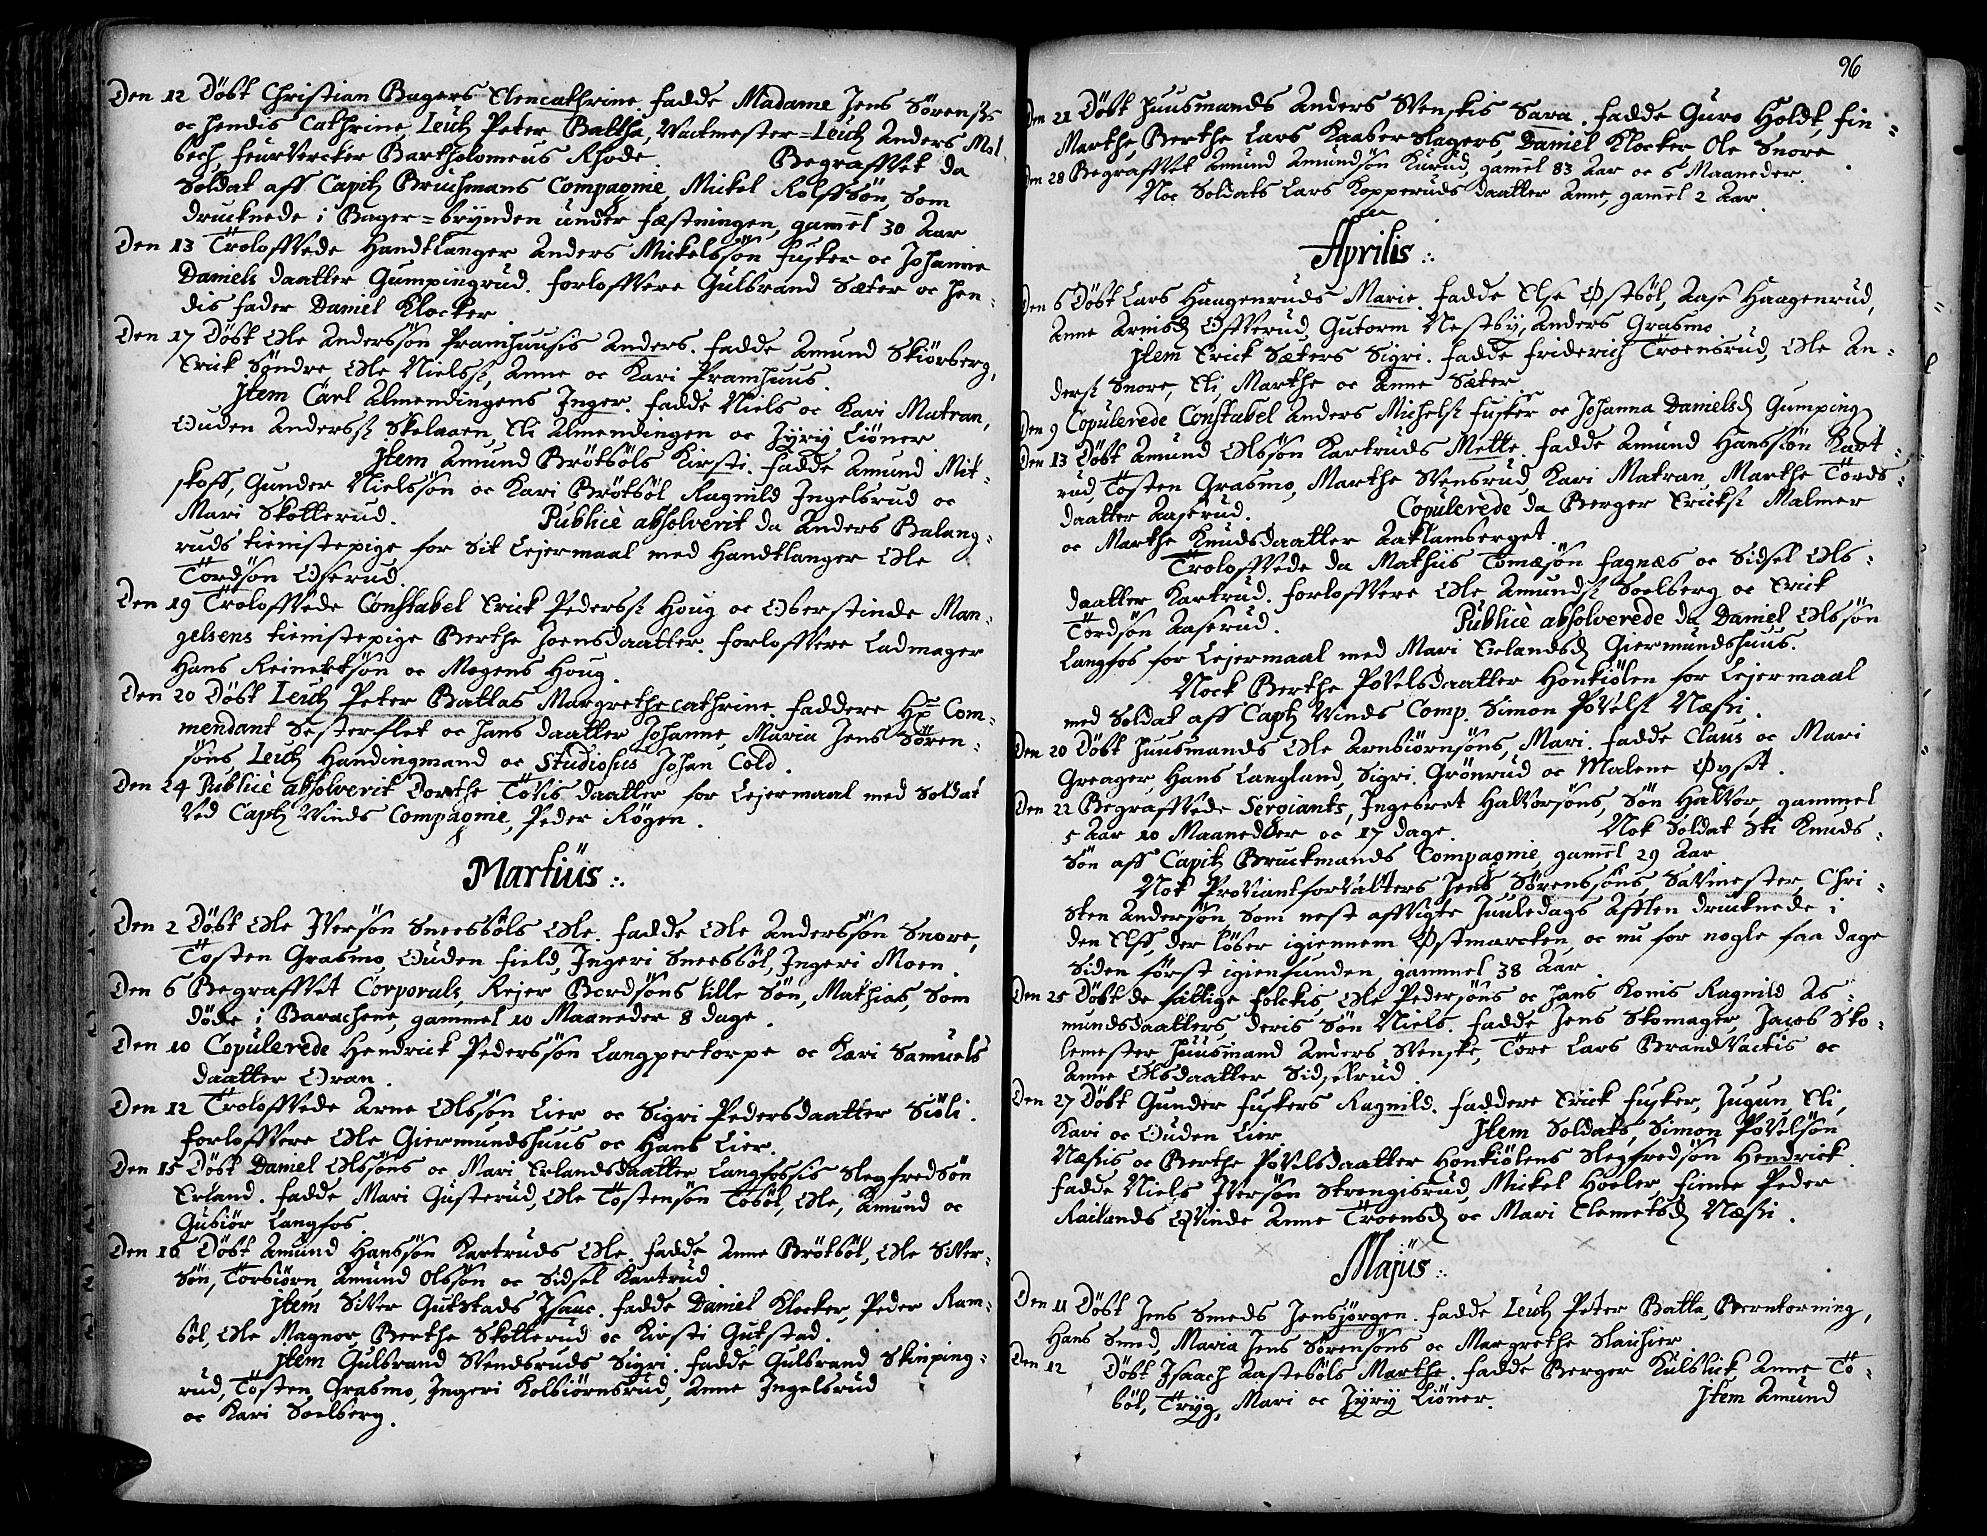 Den 12 Döbt Christian Bagers Elencathrine. fadde Madame Jens Sörens:
oc hendis Cathrine, Leut: Peter Battha, Vactmester-Leut: Anders Mol-
bech, feurvercker Bartholomeus Rhode. Begraffvet da
Soldat aff Capit: Bruchmans Compagnie, Mickel Rolffsön, som
drucknede i Bager-brynden under fæstningen, gammel 30 Aar
Den 13 Troloffvede Handtlanger Anders Mickelssön fusker oc Johanne
Daniels daatter Gumpingrud. forloffvere Gulbrand Sæter oc hen-
dis fader Daniel Klocker.
Den 17 Döbt Ole Anderssön Pramhuusis Anders. fadde Amund Skiörberg,
Erick Söndre, Ole Nielss:, Anne oc Kari Pramhuus.
Item Carl Almendingens Inger. fadde Niels oc Kari Matran,
Ouden Anderss: Skolaaen, Eli Almendingen oc Jyrij Liöner
Item Amund Brötböls Kirsti. fadde Amund Mit-
skoff, Gunder Nielssön oc Kari Brötböl, Ragnild Ingelsrud oc
Mari Skotterud. Publicè absolverit da Anders Balang-
ruds tienistepige for sit Lejermaal med Handtlanger Ole
Tordsön Oserud.
Den 19 Troloffvede Constabel Erick Pederss: Houg oc Oberstinde Man-
gelsens tienistepige Berthe Joensdaatter. forloffvere Ladmager
Hans Reinertsön oc Mogens Houg.
Den 20 Döbt Leut: Peter Battas Margrethecathrine, faddere Hr Com-
mendant Sesterflet oc hans daatter Johanne, Maria Jens Sören-
söns, Leut: Handingmand oc Studiosus Johan Cold.
Den 24 Publicè absolverit Dorthe Tovis daatter for Lejermaal med Soldat
ved Capt: Winds Compagnie, Peder Rögen.
Martius :.
Den 2 Döbt Ole Iversön Sneesböls Ole. fadde Ole Anderssön Snore,
Tosten Grasmo, Ouden field, Ingeri Sneesböl, Ingeri Moen.
Den 6 Begraffvet Corporals, Rejer Bordsöns lille Sön, Mathias, som
döde i Barachene, gammel 10 Maaneder 8 dage.
Den 10 Copulerede Hendrick Pederssön Langpertorpe oc Kari Samuels
daatter Oran.
Den 12 Troloffvede Arne Olssön Lier oc Sigri Pedersdaatter Siöli.
forloffvere Ole Giermundshuus oc Hans Lier.
Den 15 Döbt Daniel Olssöns oc Mari Erlandsdaatter Langfossis Slegfredsön
Erland. fadde Mari Gusterud, Ole Töstensön Toböl, Ole, Amund oc
Gubiör Langfos.
Den 16 Döbt Amund Hanssön Kartruds Ole. fadde Anne Brötböl, Ole Siver-
sön, Torbiörn, Amund Olssön oc Sidsel Kartrud.
Item Siver Gutstads Isaac. fadde Daniel Klocker, Peder Ram-
böl, Ole Magnor, Berthe Skotterud oc Kirsti Gutstad.
Item Gulbrand Svendsruds Sigri. fadde Gulbrand Skinping-
rud, Tosten Grasmo, Ingeri Kolbiörnsrud, Anne Ingelsrud
oc Kari Soelberg.
96
Den 21 Döbt huusmands Anders Svenskis Sara. fadde Guro Holdt, fin-
Marthe, Berthe Lars Kaaberslagers, Daniel Klocker, Ole Snore.
Den 28 Begraffvet Amund Amundsön Kurud, gammel 83 Aar oc 6 Maaneder.
Noc Soldats Lars Kopperuds daatter Anne, gammel 2 Aar.
Aprilis :.
Den 6 Döbt Lars Haagenruds Marie. fadde Else Östböl, Aase Haagenrud,
Anne Arnisd: Offverud, Gutorm Nestby, Anders Grasmo.
Item Erick Sæters Sigri. fadde friderich Troensrud, Ole An-
derss: Snore, Eli, Marthe oc Anne Sæter
Den 9 Copulerede Constabel Anders Michelss: fusker oc Johanna Danielsd: Gumping:
Den 13 Döbt Amund Olssön Kartruds Mette. fadde Amund Hanssön Kart-
rud, Tosten Grasmo, Marthe Svensrud, Kari Matran, Marthe Tords-
daatter Aaserud. Copulerede da Berger Ericks: Malmer
oc Marthe Knudsdaatter Aatlamberget
Troloffvede da Mathiis Tomæsön fagnæs oc Sidsel Ols-
daatter Kartrud. forloffvere Ole Amunds: Soelberg oc Erick
Tordsön Aaserud. Publicè absolverede da Daniel Olssön
Langfos for Lejermaal med Mari Erlandsd: Giermundshuus.
Nock Berthe Povelsdaatter Honkiölen for Lejermaal
med Soldat aff Capt: Winds Comp. Simon Povels: Næsti.
Den 20 Döbt huusmands Ole Arnbiörnsöns, Mari. fadde Claus oc Mari
Greager, Hans Langland, Sigri Grönrud oc Malene Öyset.
Den 22 Begraffvede Sergiants, Ingebret Halvorsöns, Sön Halvor, gammel
5 Aar 10 Maanedder oc 17 dage. Nok Soldat Sti Knuds-
sön aff Capit: Bruckmands Compagnie, gammel 29 Aar
Nok Proviantforvalters Jens Sörenssöns, Savmester, Chri-
sten Andersön som nest affvigte Juuledags Afften drucknede i
den Elff, der löber igiennem Östmarcken, oc nu for nogle faa dage
siden först igienfunden, gammel 38 Aar.
Den 25 Döbt de fattige folckis, Ole Pedersöns oc hans Konis Ragnild As-
mundsdaatters deris Sön Niels. fadde Jens Skomager, Jacob Sko-
lemester, Huusmand Anders Svenske, Tore Lars Brandvactis oc
Anne Olsdaatter Sidselrud.
Den 27 Döbt Gunder fuskers Ragnild. faddere Erick fusker, Jugun, Eli,
Kari oc Ouden Lier. Item Soldats, Simon Povelsön
Næstis oc Berthe Povelsdaatter Honkiölens Slegfredsön Hendrick.
fadde Niels Iversön Strengisrud, Mickel Hoeler, finne Peder
Railands Qvinde Anne Troensd: oc Mari Clemetsd: Næsti.
Majus :.
Den 11 Döbt Jens Smeds Jensjörgen. fadde Leut: Peter Batta, Berntorning,
Hans Smed, Maria Jens Sörensöns oc Margrethe Slaichier.
Den 12 Döbt Isaach Aasteböls Marthe. fadde Berger Külblick, Anne To-
böl, Tryg, Mari oc Jyrij Liöner. Item Amund